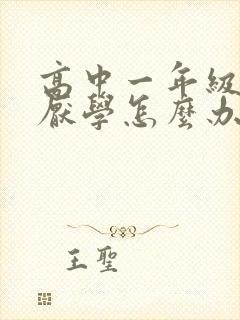 高中一年級
厭學怎麼办
王聖